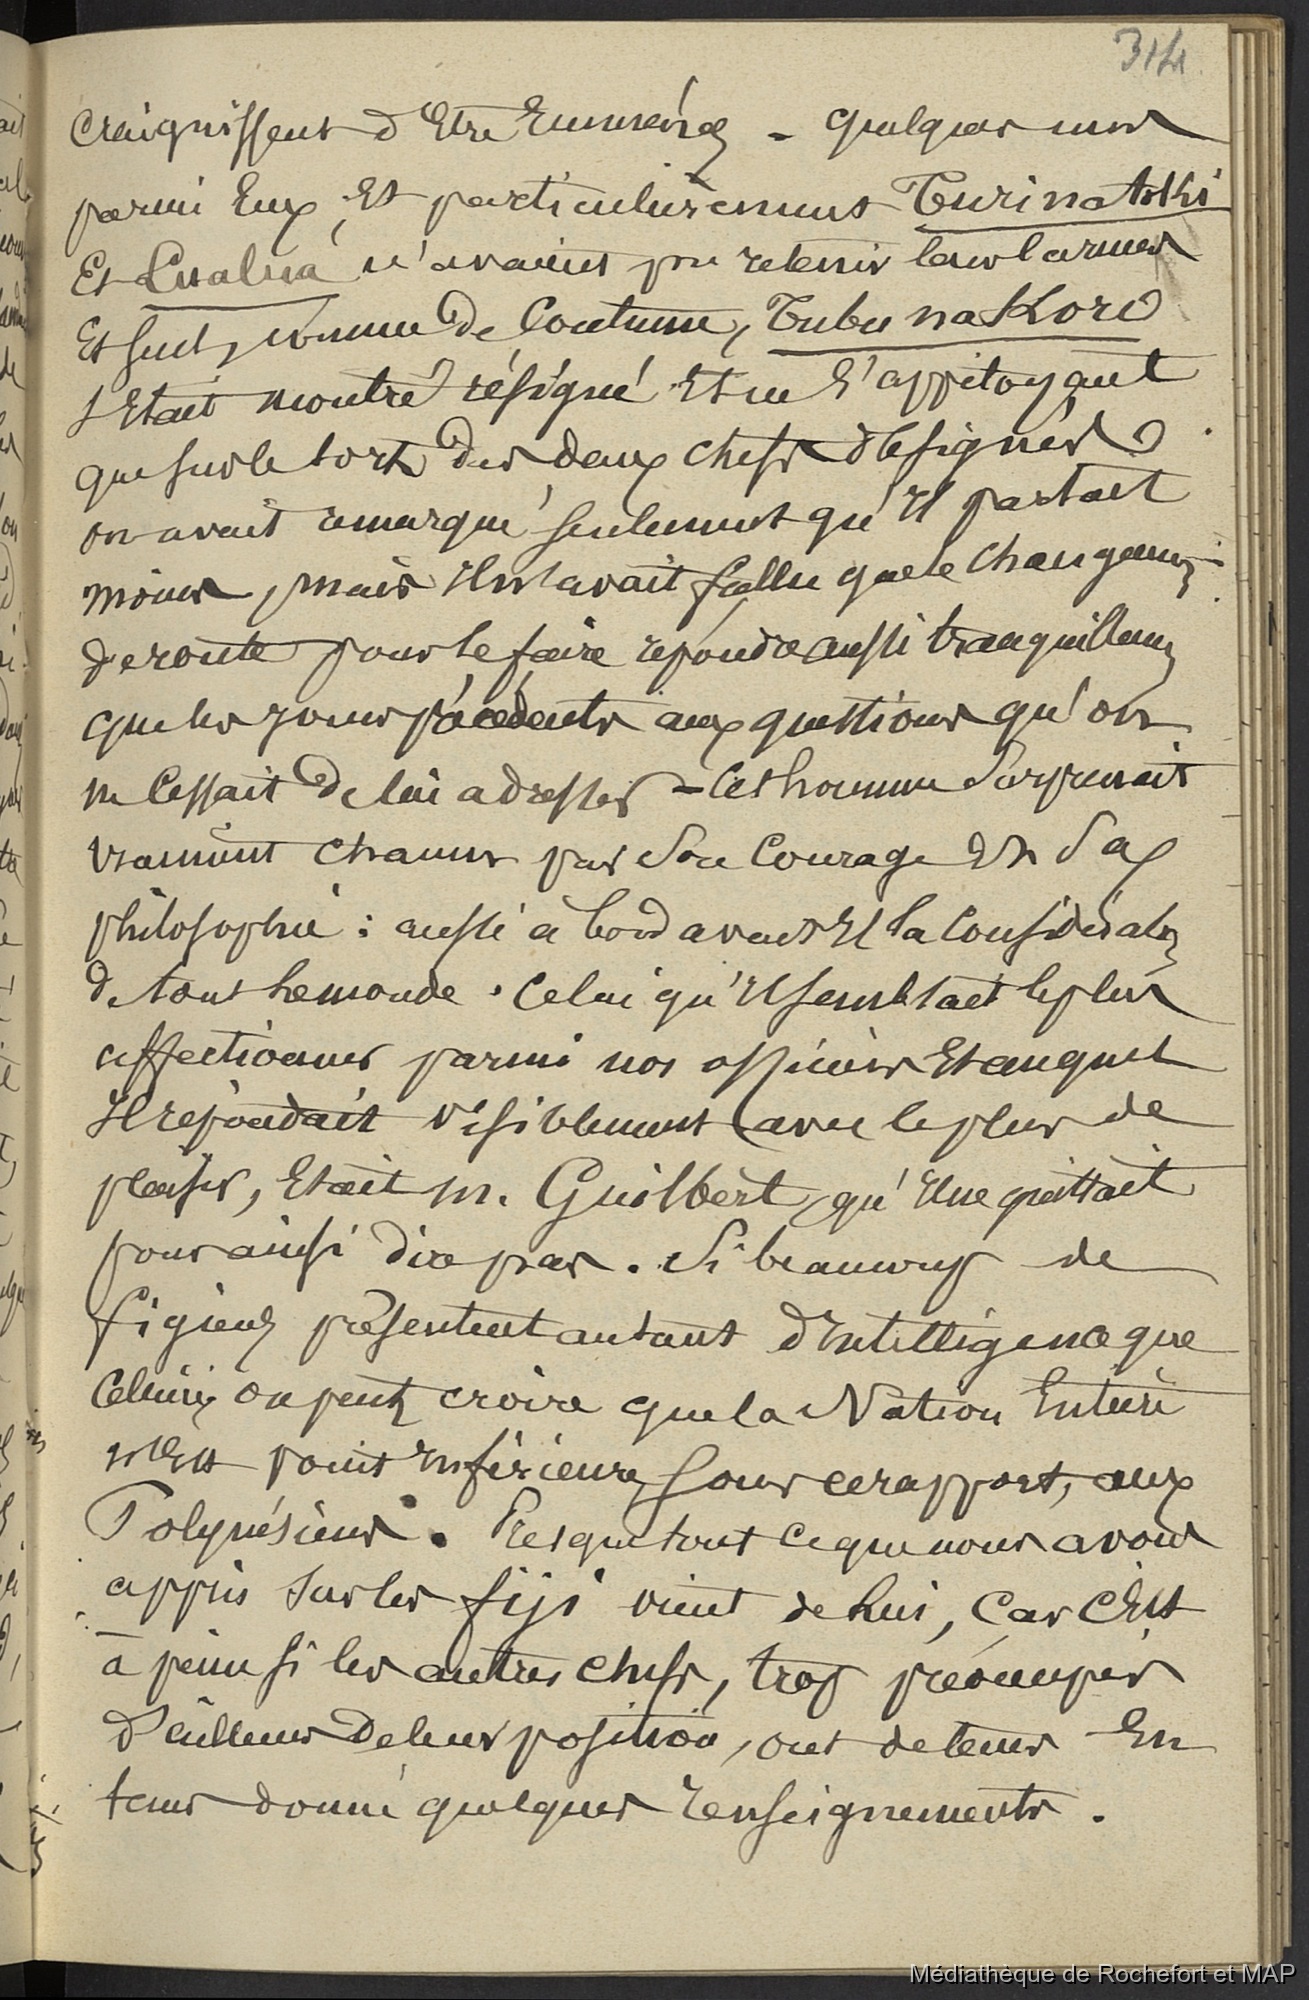 314
craignissent d'Etre Emmenés - quelques uns
parmi Eux, Et particulièrement Turinatoki
Et Lualua n'avaient pu retenir leurs larmes
Et seul, comme De Coutume, Tubu na Koro
s'Etait montré résigné Et ne s'appitoyant
que sur le sort des deux chefs désignés
on avait remarqué seulement qu'Il parlait
moins, mais Il n'avait fallu que le changement
de route pour le faire répondre aussi tranquillement
que les jours précédents aux questions qu'on
ne Cessait De lui adresser - Cet homme Surprenait
vraiment chacun par Son Courage Et Sa
philosophie : aussi à bord avait Il la Considération
De tout le monde. Celui qu'Il semblait le plus
affectionner parmi nos officiers Et auquel
Il répondait visiblement avec le plus de
plaisir, Etait m. Guilbert, qu'Il ne quittait
pour ainsi dire pas. Si beaucoup de
figiens présentent autant d'Intelligence que
Celui-ci on peut croire que la Nation Entière
n'Est point Inférieure, sous ce rapport, aux
Polynésiens. Presque tout ce que nous avons
appris sur les fiji vient de lui, Car c'Est
à peine si les autres chefs, trop préocupés
d'ailleurs De leur position, ont de tems En
tems donné quelques renseignements.
Médiathèque de Rochefort et MAP